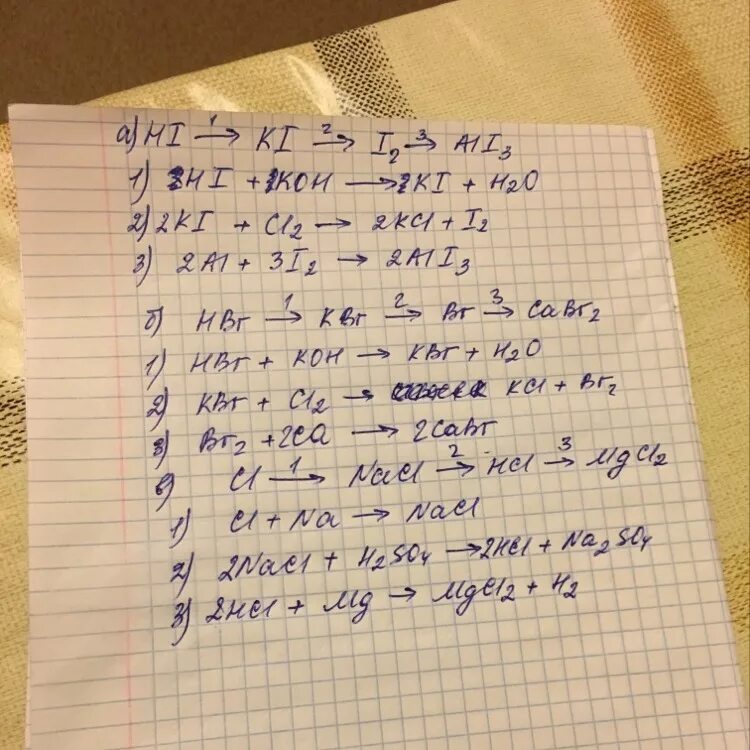 а) HI 1→ KI 2→ I₂ 3→ AlI₃
1) HI + KOH → KI + H₂O
2) 2KI + Cl₂ → 2KCl + I₂
3) 2Al + 3I₂ → 2AlI₃
б) HBr 1→ KBr 2→ Br 3→ CaBr₂
1) HBr + KOH → KBr + H₂O
2) KBr + Cl₂ → KCl + Br₂
3) Br₂ + 2Ca → 2CaBr
в) Cl 1→ NaCl 2→ HCl 3→ MgCl₂
1) Cl + Na → NaCl
2) 2NaCl + H₂SO₄ → 2HCl + Na₂SO₄
3) 2HCl + Mg → MgCl₂ + H₂